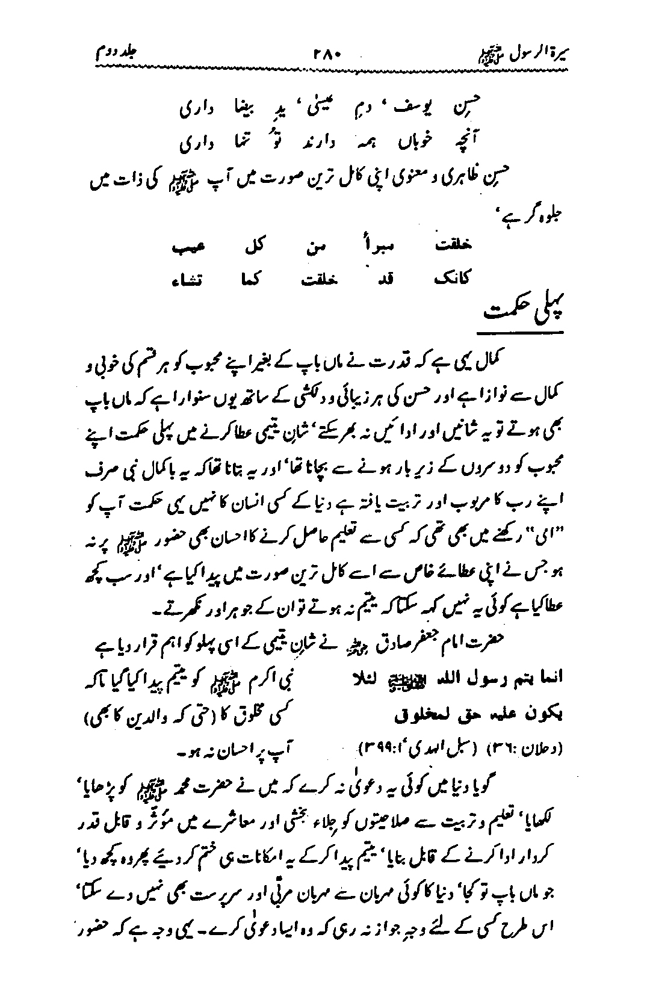 سیرۃ الرسول ﷺ ۲۸۰ جلد دوم
حسن یوسف، دم عیسیٰ، ید بیضا داری
آنچہ خوباں ہمہ دارند تو تنہا داری
حسن ظاہری و معنوی اپنی کامل ترین صورت میں آپ ﷺ کی ذات میں
جلوہ گر ہے،
خلقت مبرأ من کل عیب
کانک قد خلقت کما تشاء
پہلی حکمت
کمال یہی ہے کہ قدرت نے ماں باپ کے بغیر اپنے محبوب کو ہر قسم کی خوبی و
کمال سے نوازا ہے اور حسن کی ہر زیبائی و دلکشی کے ساتھ یوں سنوارا ہے کہ ماں باپ
بھی ہوتے تو یہ شانیں اور ادائیں نہ بھر سکتے، شان یتیمی عطا کرنے میں پہلی حکمت اپنے
محبوب کو دوسروں کے زیر بار ہونے سے بچانا تھا، اور یہ بتانا تھا کہ یہ باکمال نبی صرف
اپنے رب کا مربوب اور تربیت یافتہ ہے دنیا کے کسی انسان کا نہیں یہی حکمت آپ کو
"امی" رکھنے میں بھی تھی کہ کسی سے تعلیم حاصل کرنے کا احسان بھی حضور ﷺ پر نہ
ہو جس نے اپنی عطائے خاص سے اسے کامل ترین صورت میں پیدا کیا ہے، اور سب کچھ
عطا کیا ہے کوئی یہ نہیں کہہ سکتا کہ یتیم نہ ہوتے تو ان کے جوہر اور نکھرتے۔
حضرت امام جعفر صادق ؓ نے شان یتیمی کے اسی پہلو کو اہم قرار دیا ہے
انما یتم رسول اللہ ﷺ لئلا نبی اکرم ﷺ کو یتیم پیدا کیا گیا تاکہ
یکون علیہ حق لمخلوق کسی مخلوق کا (حتی کہ والدین کا بھی)
(دحلان: ۳۶) (سبل الہدی، ۱: ۳۹۹) آپ پر احسان نہ ہو۔
گویا دنیا میں کوئی یہ دعویٰ نہ کرے کہ میں نے حضرت محمد ﷺ کو پڑھایا،
لکھایا، تعلیم و تربیت سے صلاحیتوں کو جلاء بخشی اور معاشرے میں مؤثر و قابل قدر
کردار ادا کرنے کے قابل بنایا، یتیم پیدا کرکے یہ امکانات ہی ختم کر دیئے پھر وہ کچھ دیا،
جو ماں باپ تو کجا، دنیا کا کوئی مہربان سے مہربان مربّی اور سرپرست بھی نہیں دے سکتا،
اس طرح کسی کے لئے وجہ جواز نہ رہی کہ وہ ایسا دعویٰ کرے۔ یہی وجہ ہے کہ حضور